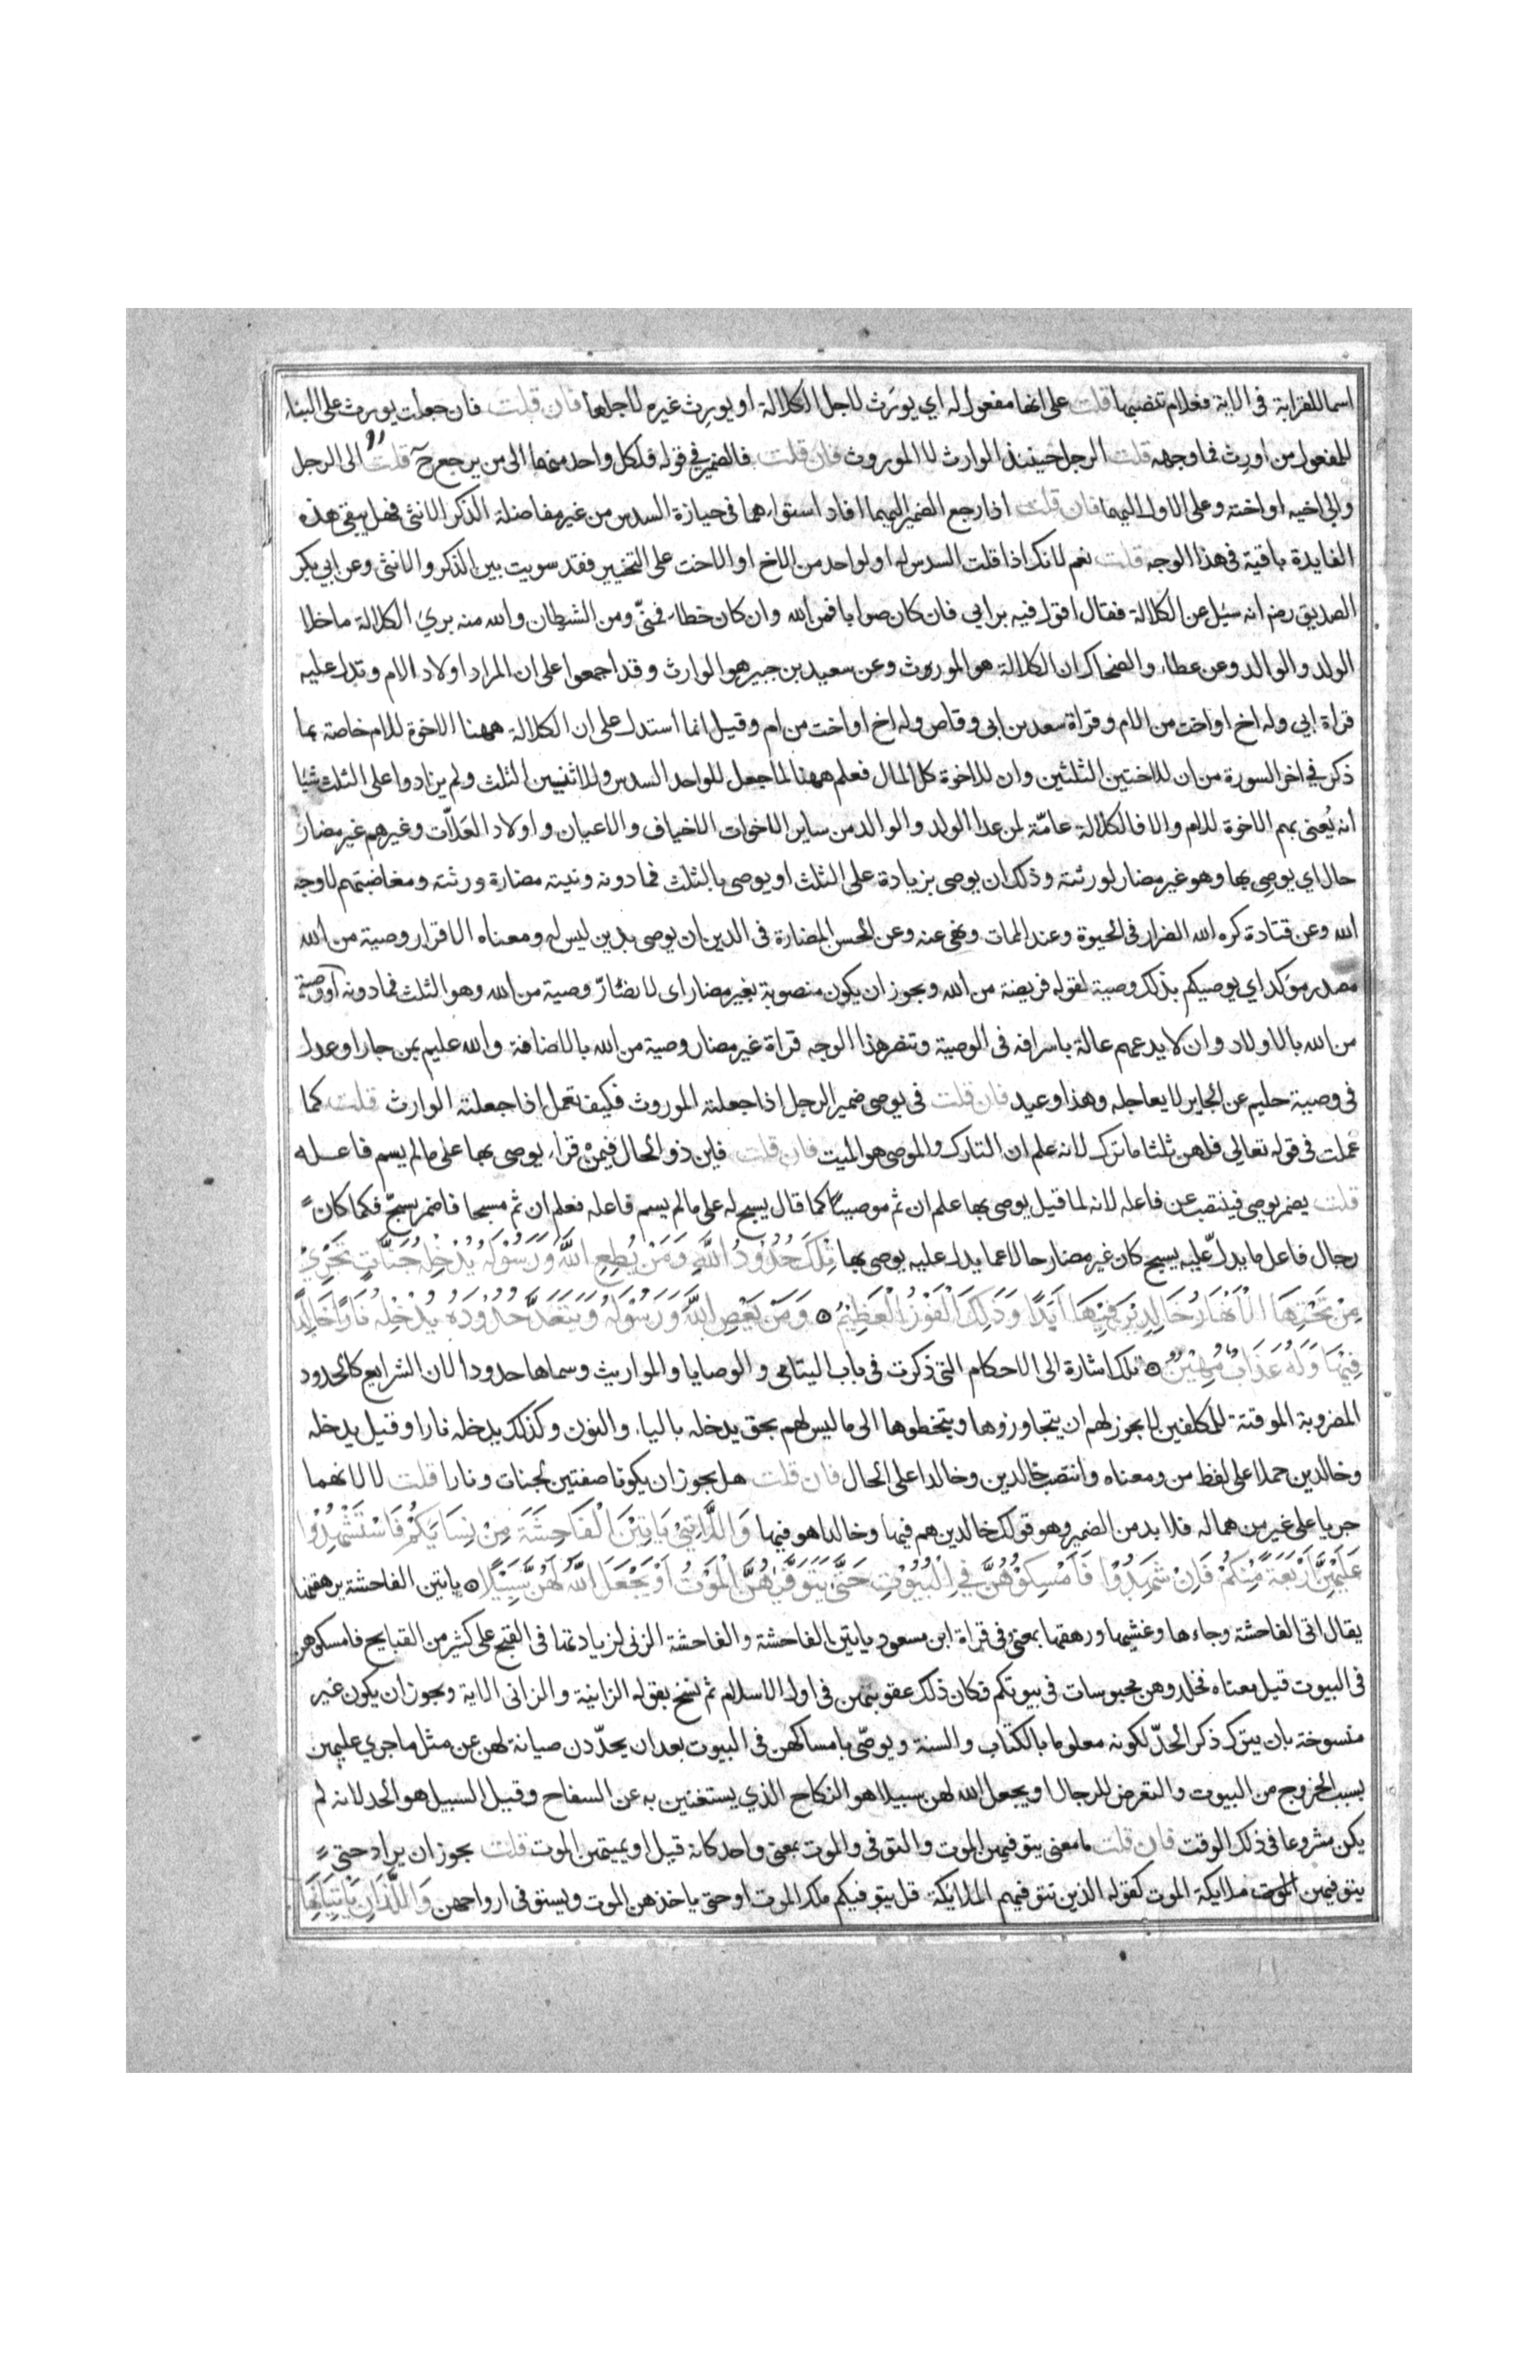 اسما للقرابة فى الاية فعلام تنصبها قلت على انها مفعول له اي يورَث لاجل الكلالة او يورِث غيره لاجلها فان قلت فان جعلت يورث على البناء
للمفعول من اورث فما وجهه قلت الرجل حينئذ الوارث لا الموروث فان قلت فالضمير في قوله فلكل واحد منهما الى من يرجع ح قلت الى الرجل
والى اخيه او اخته وعلى الاول اليهما فان قلت اذا رجع الضمير اليهما افاد استواءهما فى حيازة السدس من غير مفاضلة الذكر الانثى فهل يبقى هذه
الفايدة باقية فى هذا الوجه قلت نعم لانك اذا قلت السدس له او لواحد من الاخ او الاخت على التخيير فقد سويت بين الذكر والانثى وعن ابي بكر
الصديق رضه انه سيل عن الكلالة فقال اقول فيه برايى فان كان صوابا فمن الله وان كان خطاء فمنّي ومن الشيطان والله منه بريء الكلالة ماخلا
الولد والوالد وعن عطاء والضحاك ان الكلالة هو الموروث وعن سعيد بن جبير هو الوارث وقد اجمعوا على ان المراد اولاد الام وتدل عليه
قراة ابي وله اخ او اخت من الام وقراة سعد بن ابى وقاص وله اخ او اخت من ام وقيل انما استدل على ان الكلالة ههنا الاخوة للام خاصة بما
ذكر في اخر السورة من ان للاختين الثلثين وان للاخوة كل المال فعلم ههنا لما جعل للواحد السدس وللاثنين الثلث ولم يزادوا على الثلث شيا
انه يُعنى بهم الاخوة للام والا فالكلالة عامّة لمن عدا الولد والوالد من ساير الاخوات الاخياف والاعيان واولاد العَلاّت وغيرهم غير مضار
حال اي يوصى بها وهو غير مضار لورثته وذلك ان يوصى بزيادة على الثلث او يوصى بالثلث فما دونه ونيته مضارة ورثته ومغاضبتهم لا وجه
الله وعن قتادة كره الله الضرار فى الحيوة وعند الممات ونهى عنه وعن الحسن المضارة فى الدين ان يوصى بدين ليس له ومعناه الاقرار وصية من الله
مصدر موكد اي يوصيكم بذلك وصية لقوله فريضة من الله ويجوز ان يكون منصوبة بغير مضار اى لا يضارّ وصية من الله وهو الثلث فما دونه او وصية
من الله بالاولاد وان لا يدعهم عالة باسرافه فى الوصية وتنصر هذا الوجه قراة غير مضار وصية من الله بالاضافة والله عليم بمن جار او عدل
فى وصيته حليم عن الجاير لا يعاجله وهذا وعيد فان قلت فى يوصى ضمير الرجل اذا جعلته الموروث فكيف تعمل اذا جعلته الوارث قلت كما
عملت فى قوله تعالي فلهن ثلثا ما ترك لانه علم ان التارك والموصى هو الميت فان قلت فاين ذو الحال فيمن قراء يوصى بها على ما لم يسم فاعله
قلت يضمر يوصى فينتصب عن فاعله لانه لما قيل يوصى بها علم ان ثم موصيا كما قال يسبح له على ما لم يسم فاعله فعلم ان ثم مسبحا فاضمر يسبّح فكما كان
رجال فاعل ما يدلّ عليه يسبح كان غير مضار حالا عما يدل عليه يوصى بها تِلْكَ حُدُودُ اللّٰهِ وَمَنْ يُطِعِ اللّٰهَ وَرَسُوْلَهُ يُدْخِلْهُ جَنَّاتٍ تَجْرِيْ
مِنْ تَحْتِهَا الْاَنْهَارُ خَالِدِيْنَ فِيْهَا اَبَدًا وَذٰلِكَ الْفَوْزُ الْعَظِيْمُ ۝ وَمَنْ يَعْصِ اللّٰهَ وَرَسُوْلَهُ وَيَتَعَدَّ حُدُوْدَهُ يُدْخِلْهُ نَارًا خَالِدًا
فِيْهَا وَلَهُ عَذَابٌ مُهِيْنٌ ۝ تلك اشارة الى الاحكام التى ذكرت فى باب اليتامى والوصايا والمواريث وسماها حدودا لان الشرايع كالحدود
المضروبة الموقتة للمكلفين لا يجوز لهم ان يتجاوزوها ويتخطوها الى ما ليس لهم بحق يدخله بالياء والنون وكذلك يدخله نارا وقيل يدخله
وخالدين حملا على لفظ من ومعناه وانتصب خالدين وخالدا على الحال فان قلت هل يجوز ان يكونا صفتين لجنات ونارا قلت لا لانهما
جريا على غير من هما له فلا بد من الضمير وهو قولك خالدين هم فيها وخالدا هو فيها وَاللَّاتِيْ يَاْتِيْنَ الْفَاحِشَةَ مِنْ نِسَائِكُمْ فَاسْتَشْهِدُوْا
عَلَيْهِنَّ اَرْبَعَةً مِنْكُمْ فَاِنْ شَهِدُوْا فَاَمْسِكُوْهُنَّ فِي الْبُيُوْتِ حَتّٰى يَتَوَفّٰهُنَّ الْمَوْتُ اَوْ يَجْعَلَ اللّٰهُ لَهُنَّ سَبِيْلًا ۝ ياتين الفاحشة يرهقنها
يقال اتى الفاحشة وجاءها وغشيها ورهقها بمعنى وفى قراة ابن مسعود ياتين بالفاحشة والفاحشة الزنى لزيادتها فى القبح على كثير من القبايح فامسكوهن
فى البيوت قيل معناه فخلدوهن محبوسات فى بيوتكم فكان ذلك عقوبتهن فى اول الاسلام ثم نسخ بقوله الزانية والزانى الاية ويجوز ان يكون غير
منسوخة بان يترك ذكر الحدّ لكونه معلوما بالكتاب والسنة ويوصّى بامساكهن فى البيوت بعد ان يحدّدن صيانة لهن عن مثل ما جرى عليهن
بسبب الخروج من البيوت والتعرض للرجال او يجعل الله لهن سبيلا هو النكاح الذي يستغنين به عن السفاح وقيل السبيل هو الحد لانه لم
يكن مشروعا فى ذلك الوقت فان قلت ما معنى يتوفيهن الموت والتوفى والموت بمعنى واحد كانه قيل او يميتهن الموت قلت يجوز ان يراد حتى
يتوفيهن الموت ملايكة الموت كقوله الذين تتوفيهم الملائكة قل يتوفيكم ملك الموت او حتى ياخذهن الموت ويستوفى ارواحهن وَاللَّذَانِ يَاْتِيَانِهَا